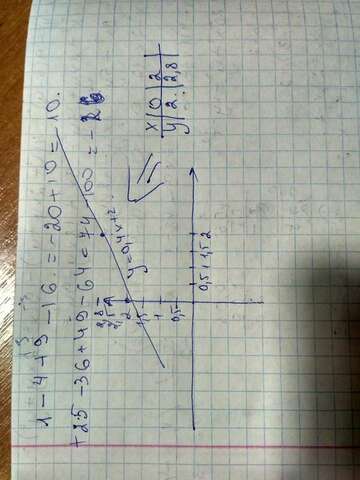 1 - 4 + 9 - 16 = -20 + 10 = -10.
+ 25 - 36 + 49 - 64 = 74 - 100 = -26
y = 0,4x + 2
x | 0 | 2 |
y | 2 | 2,8 |
2,8
2,5
2
1,5
1
0,5
0,5 1 1,5 2